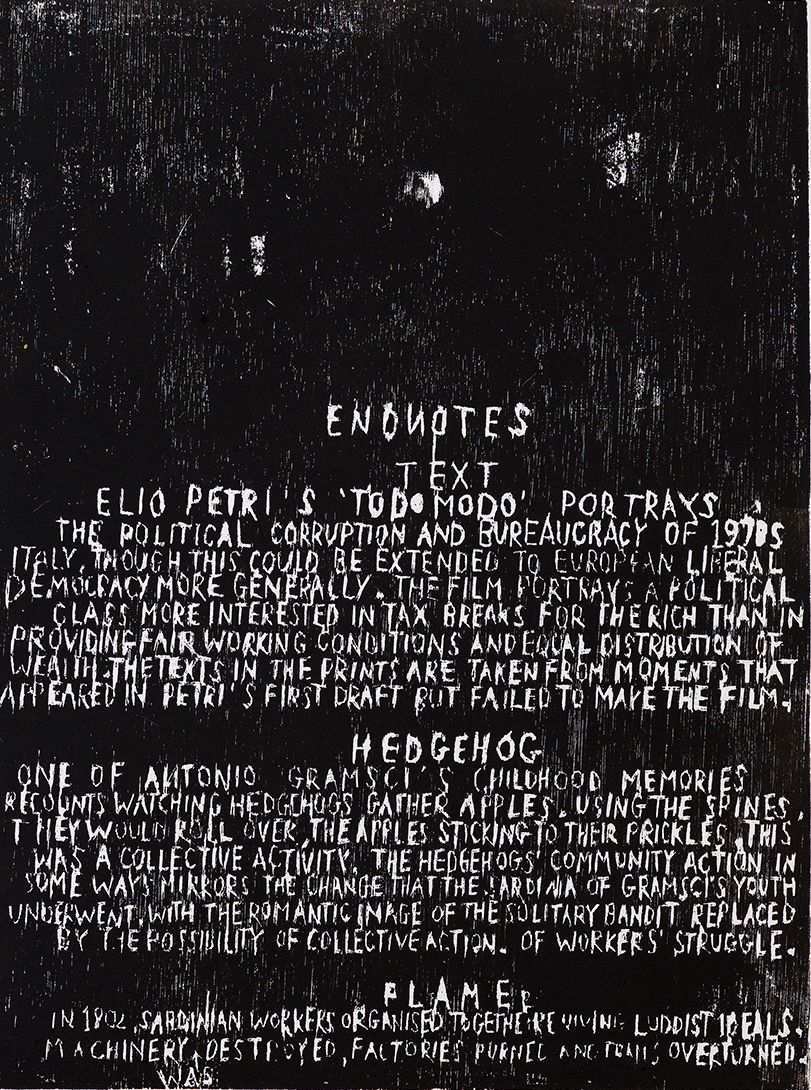 ENDNOTES
TEXT
ELIO PETRI'S 'TODO MODO' PORTRAYS
THE POLITICAL CORRUPTION AND BUREAUCRACY OF 1970S
ITALY, THOUGH THIS COULD BE EXTENDED TO EUROPEAN LIBERAL
DEMOCRACY MORE GENERALLY. THE FILM PORTRAYS A POLITICAL
CLASS MORE INTERESTED IN TAX BREAKS FOR THE RICH THAN IN
PROVIDING FAIR WORKING CONDITIONS AND EQUAL DISTRIBUTION OF
WEALTH. THE TEXTS IN THE PRINTS ARE TAKEN FROM MOMENTS THAT
APPEARED IN PETRI'S FIRST DRAFT BUT FAILED TO MAKE THE FILM.
HEDGEHOG
ONE OF ANTONIO GRAMSCI'S CHILDHOOD MEMORIES
RECOUNTS WATCHING HEDGEHOGS GATHER APPLES. USING THE SPINES,
THEY WOULD ROLL OVER, THE APPLES STICKING TO THEIR PRICKLES. THIS
WAS A COLLECTIVE ACTIVITY. THE HEDGEHOGS' COMMUNITY ACTION IN
SOME WAYS MIRRORS THE CHANGE THAT THE SARDINIA OF GRAMSCI'S YOUTH
UNDERWENT, WITH THE ROMANTIC IMAGE OF THE SOLITARY BANDIT REPLACED
BY THE POSSIBILITY OF COLLECTIVE ACTION. OF WORKERS' STRUGGLE.
FLAME
IN SARDINIAN WORKERS ORGANISED TOGETHER LUDDIST IDEALS.
MACHINERY DESTROYED, FACTORIES BURNED AND OVERTURNED.
WAS